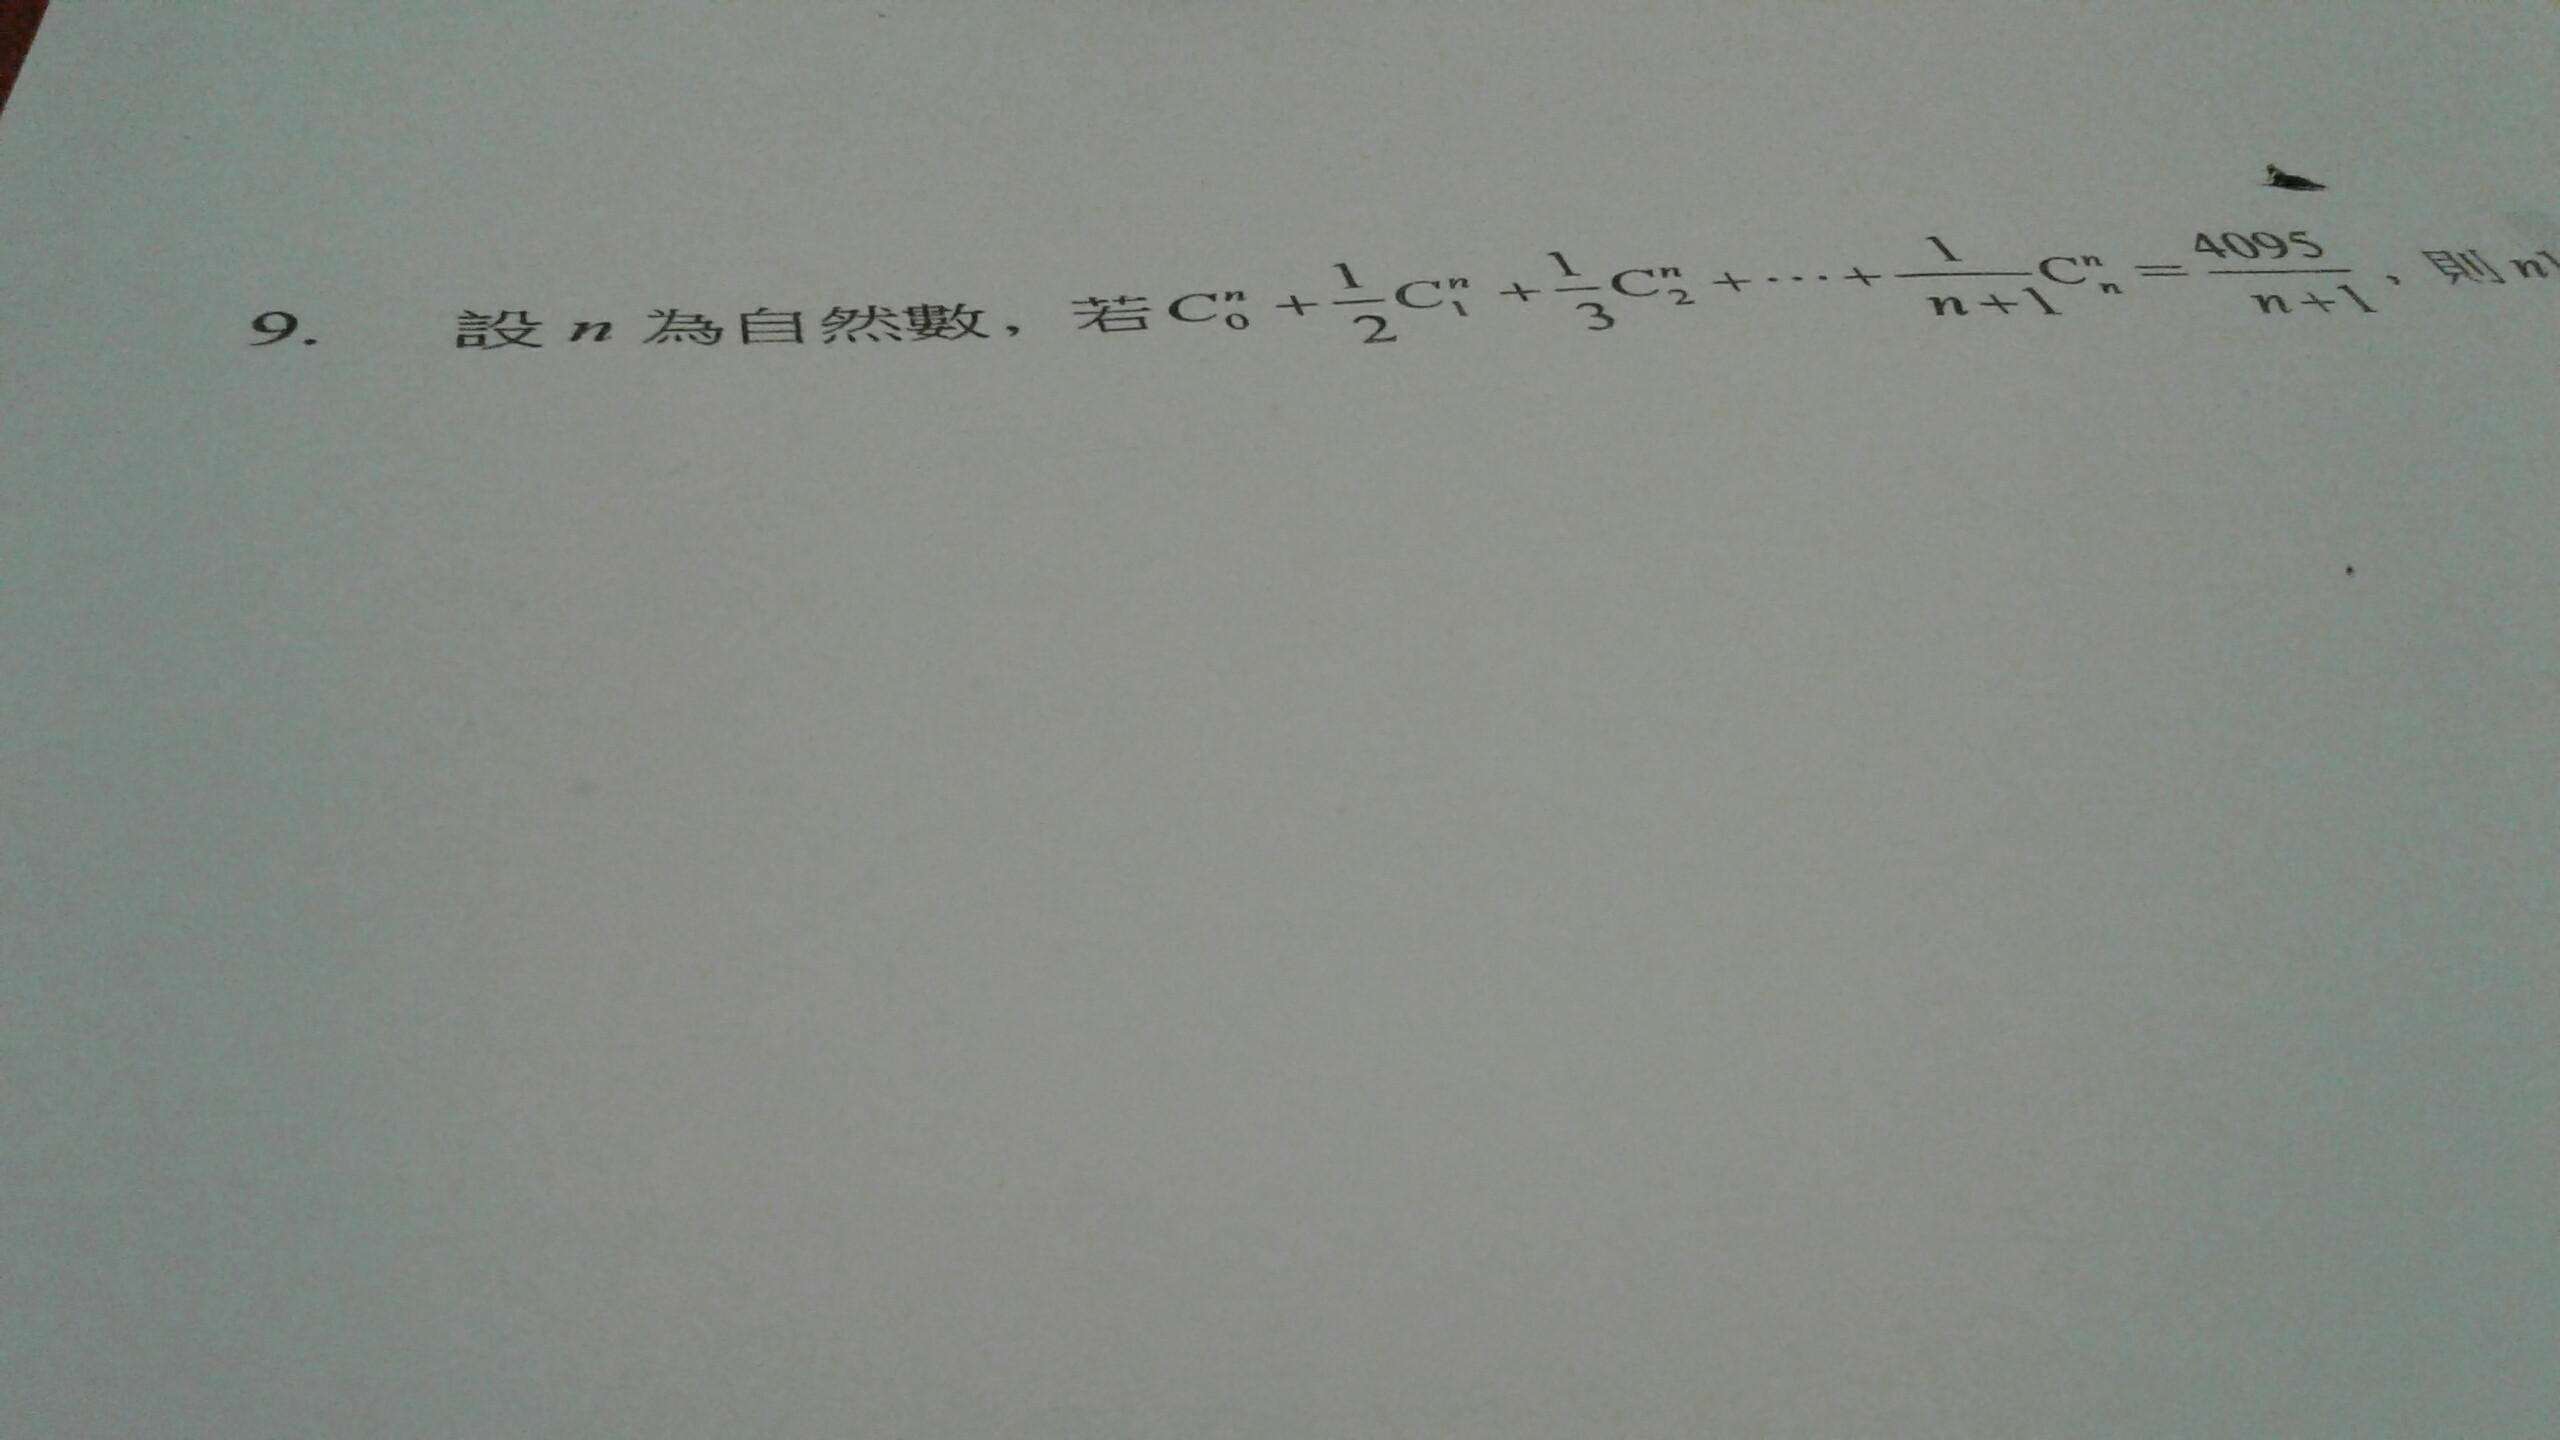 9. 設 n 為自然數，若 C₀ⁿ + 1/2 C₁ⁿ + 1/3 C₂ⁿ + ⋯ + 1/(n+1) Cₙⁿ = 4095/(n+1)，則 n